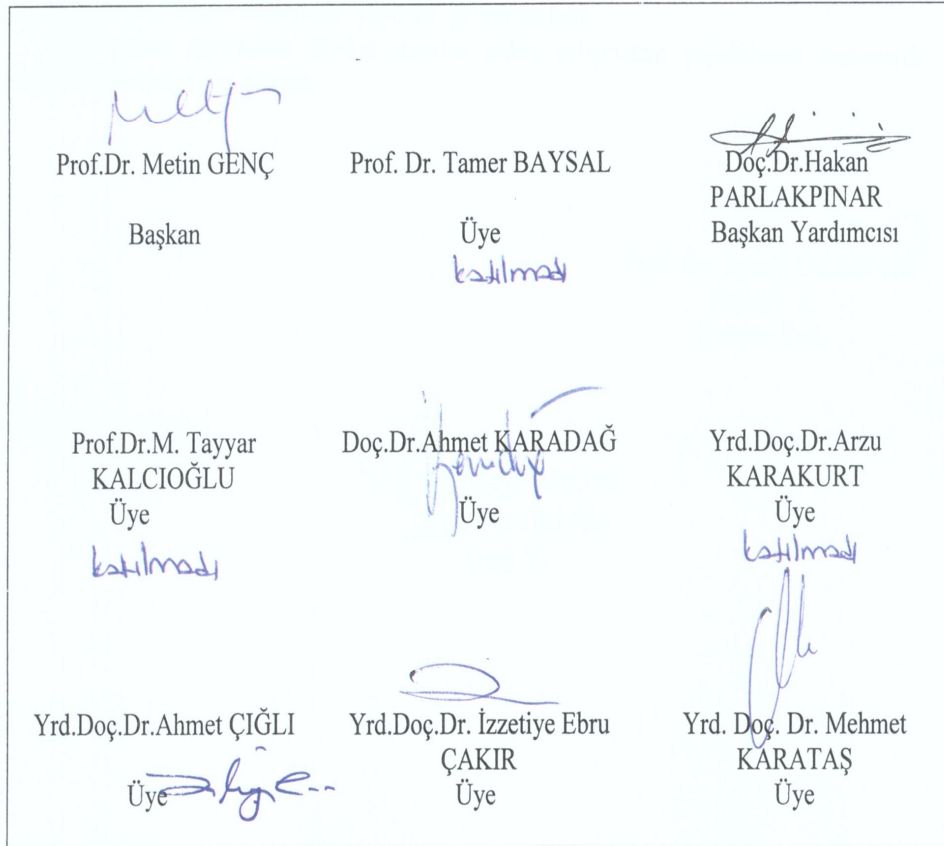 Prof.Dr. Metin GENÇ
Başkan
Prof. Dr. Tamer BAYSAL
Üye
katılmadı
Doç.Dr.Hakan
PARLAKPINAR
Başkan Yardımcısı
Prof.Dr.M. Tayyar
KALCIOĞLU
Üye
katılmadı
Doç.Dr.Ahmet KARADAĞ
Üye
Yrd.Doç.Dr.Arzu
KARAKURT
Üye
katılmadı
Yrd.Doç.Dr.Ahmet ÇIĞLI
Üye
Yrd.Doç.Dr. İzzetiye Ebru
ÇAKIR
Üye
Yrd. Doç. Dr. Mehmet
KARATAŞ
Üye